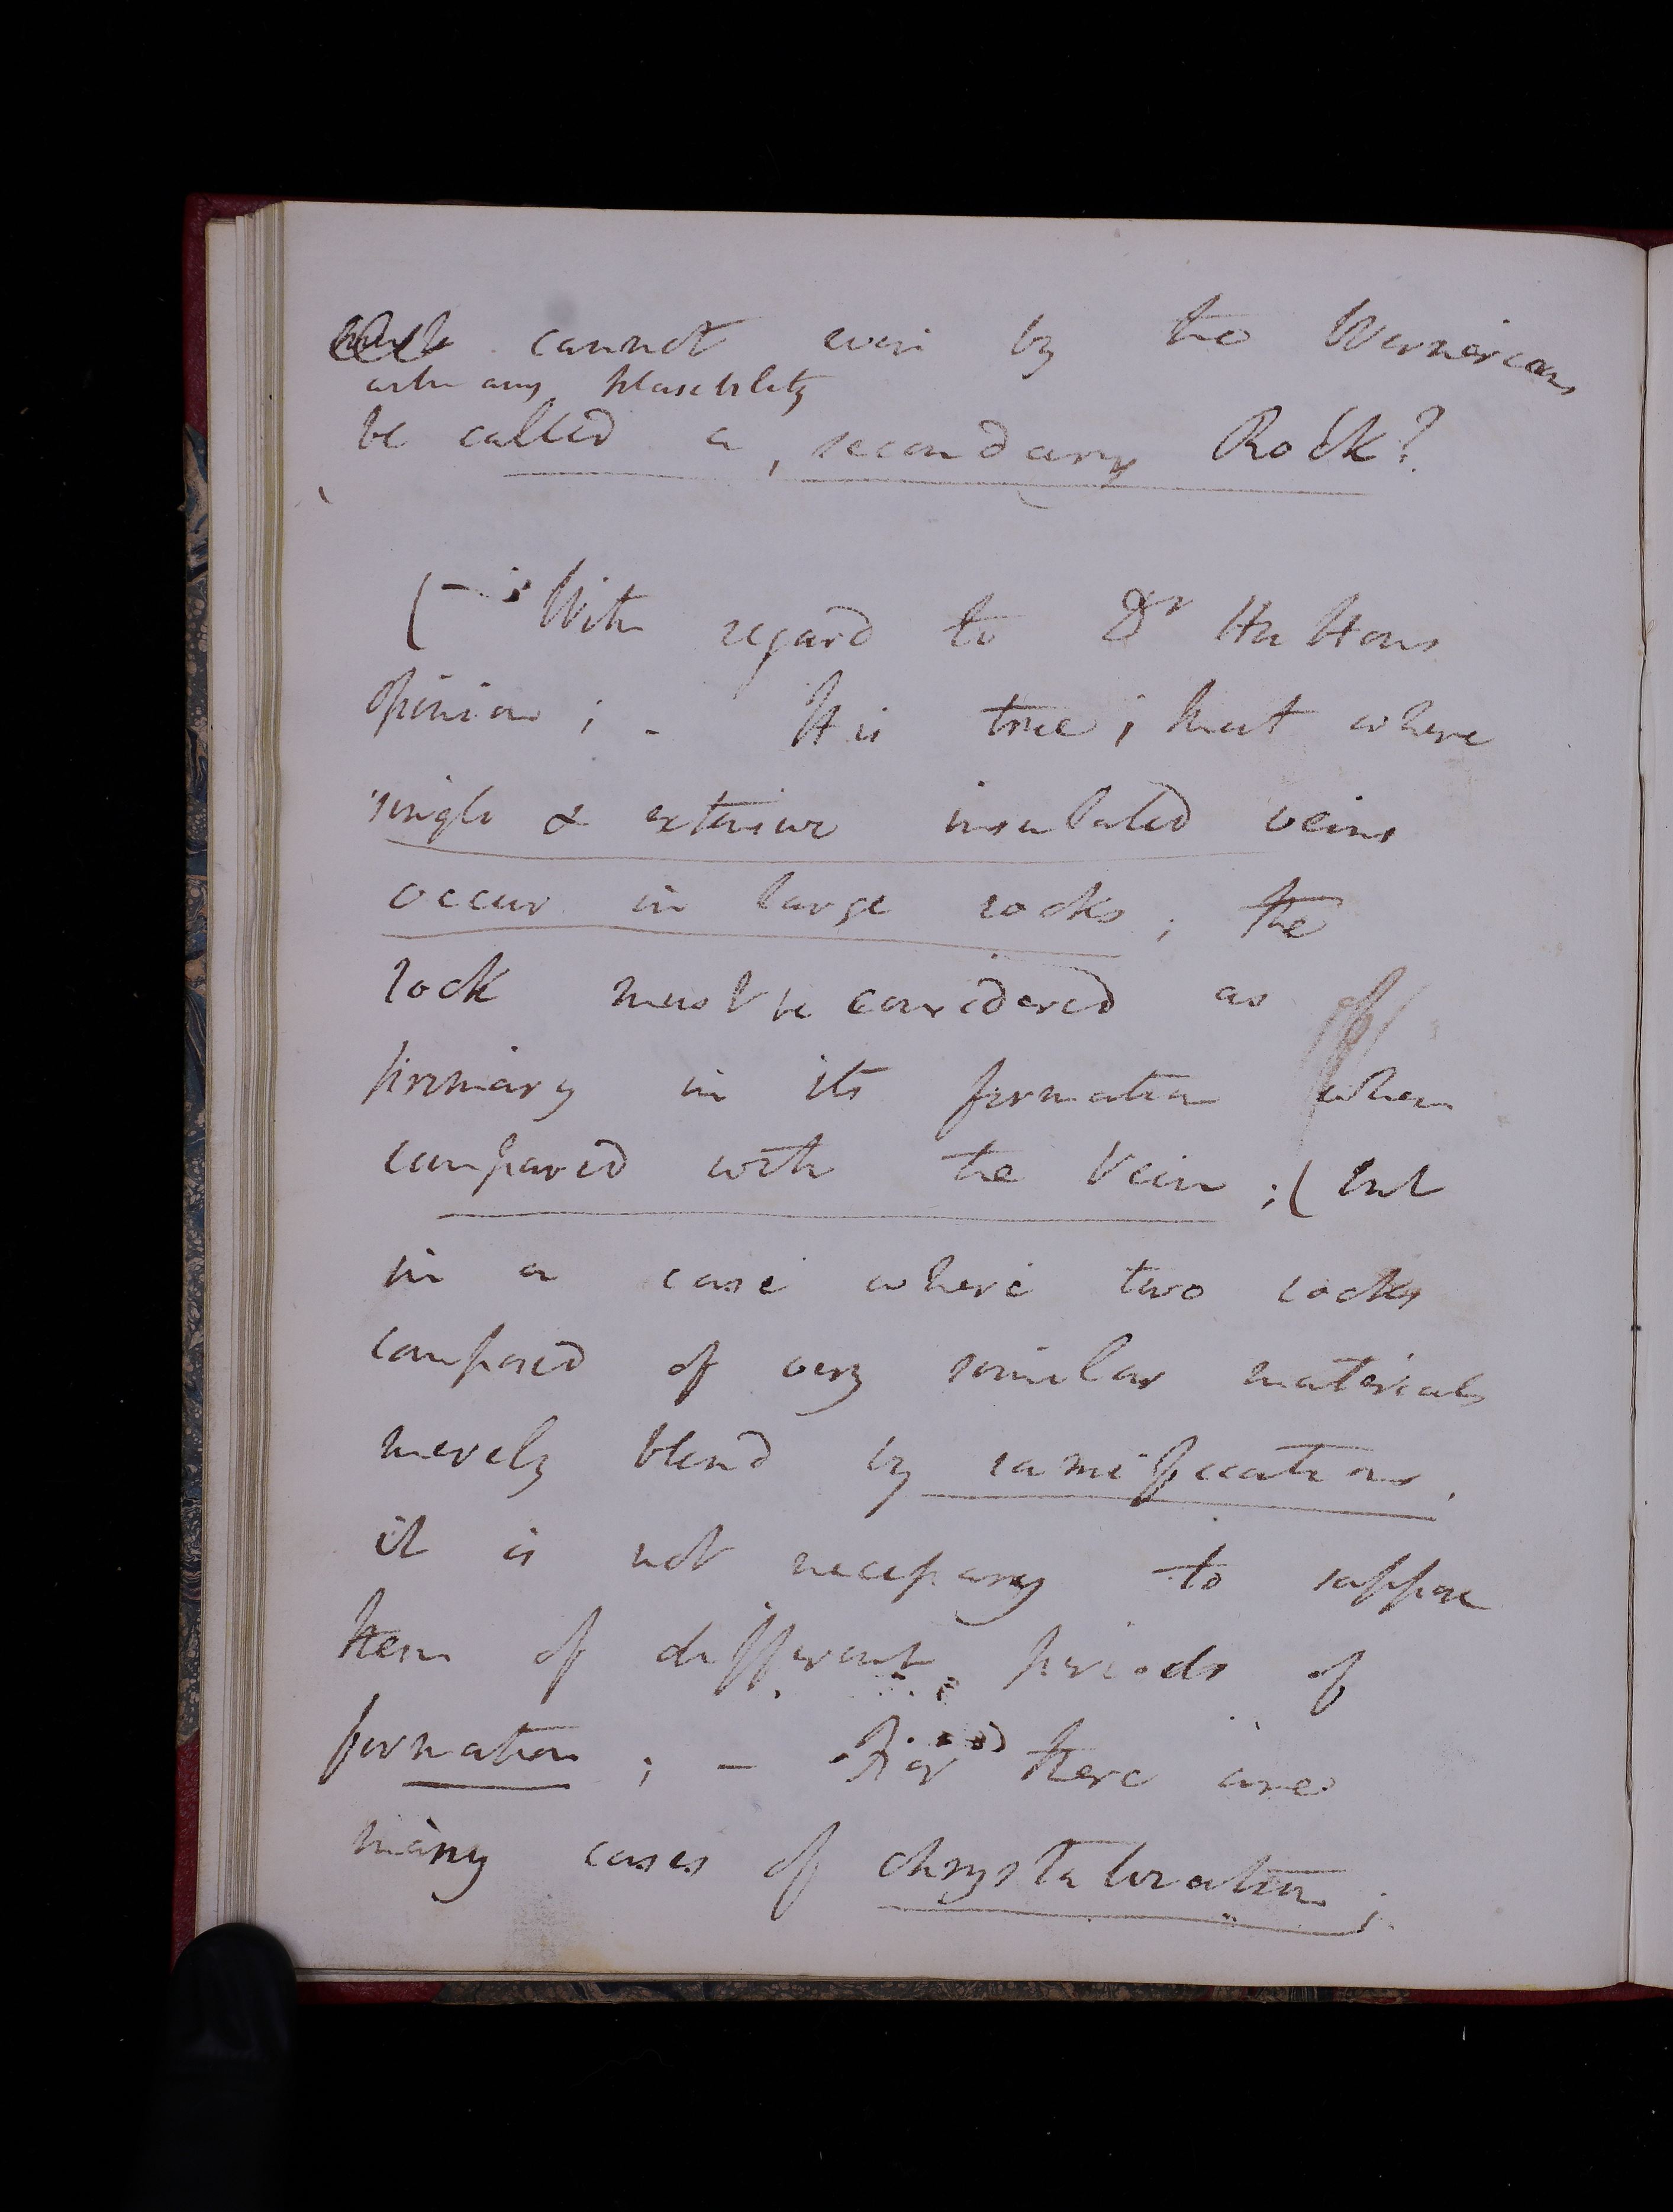 cannot even by the Wernerians
with any plausibility
be called a, secondary Rock?
(– With regard to Dr Huttons
opinion; - It is true; that where
single & extensive insulated veins
occur in large rocks; the
rock must be considered as of
primary in its formation when
compared with the Vein; ( but
in a case where two rocks
composed of very similar materials
merely blend by ramifications.
it is not necessary to suppose
them of different periods of
formation; – For there are
many cases of chrystalization;